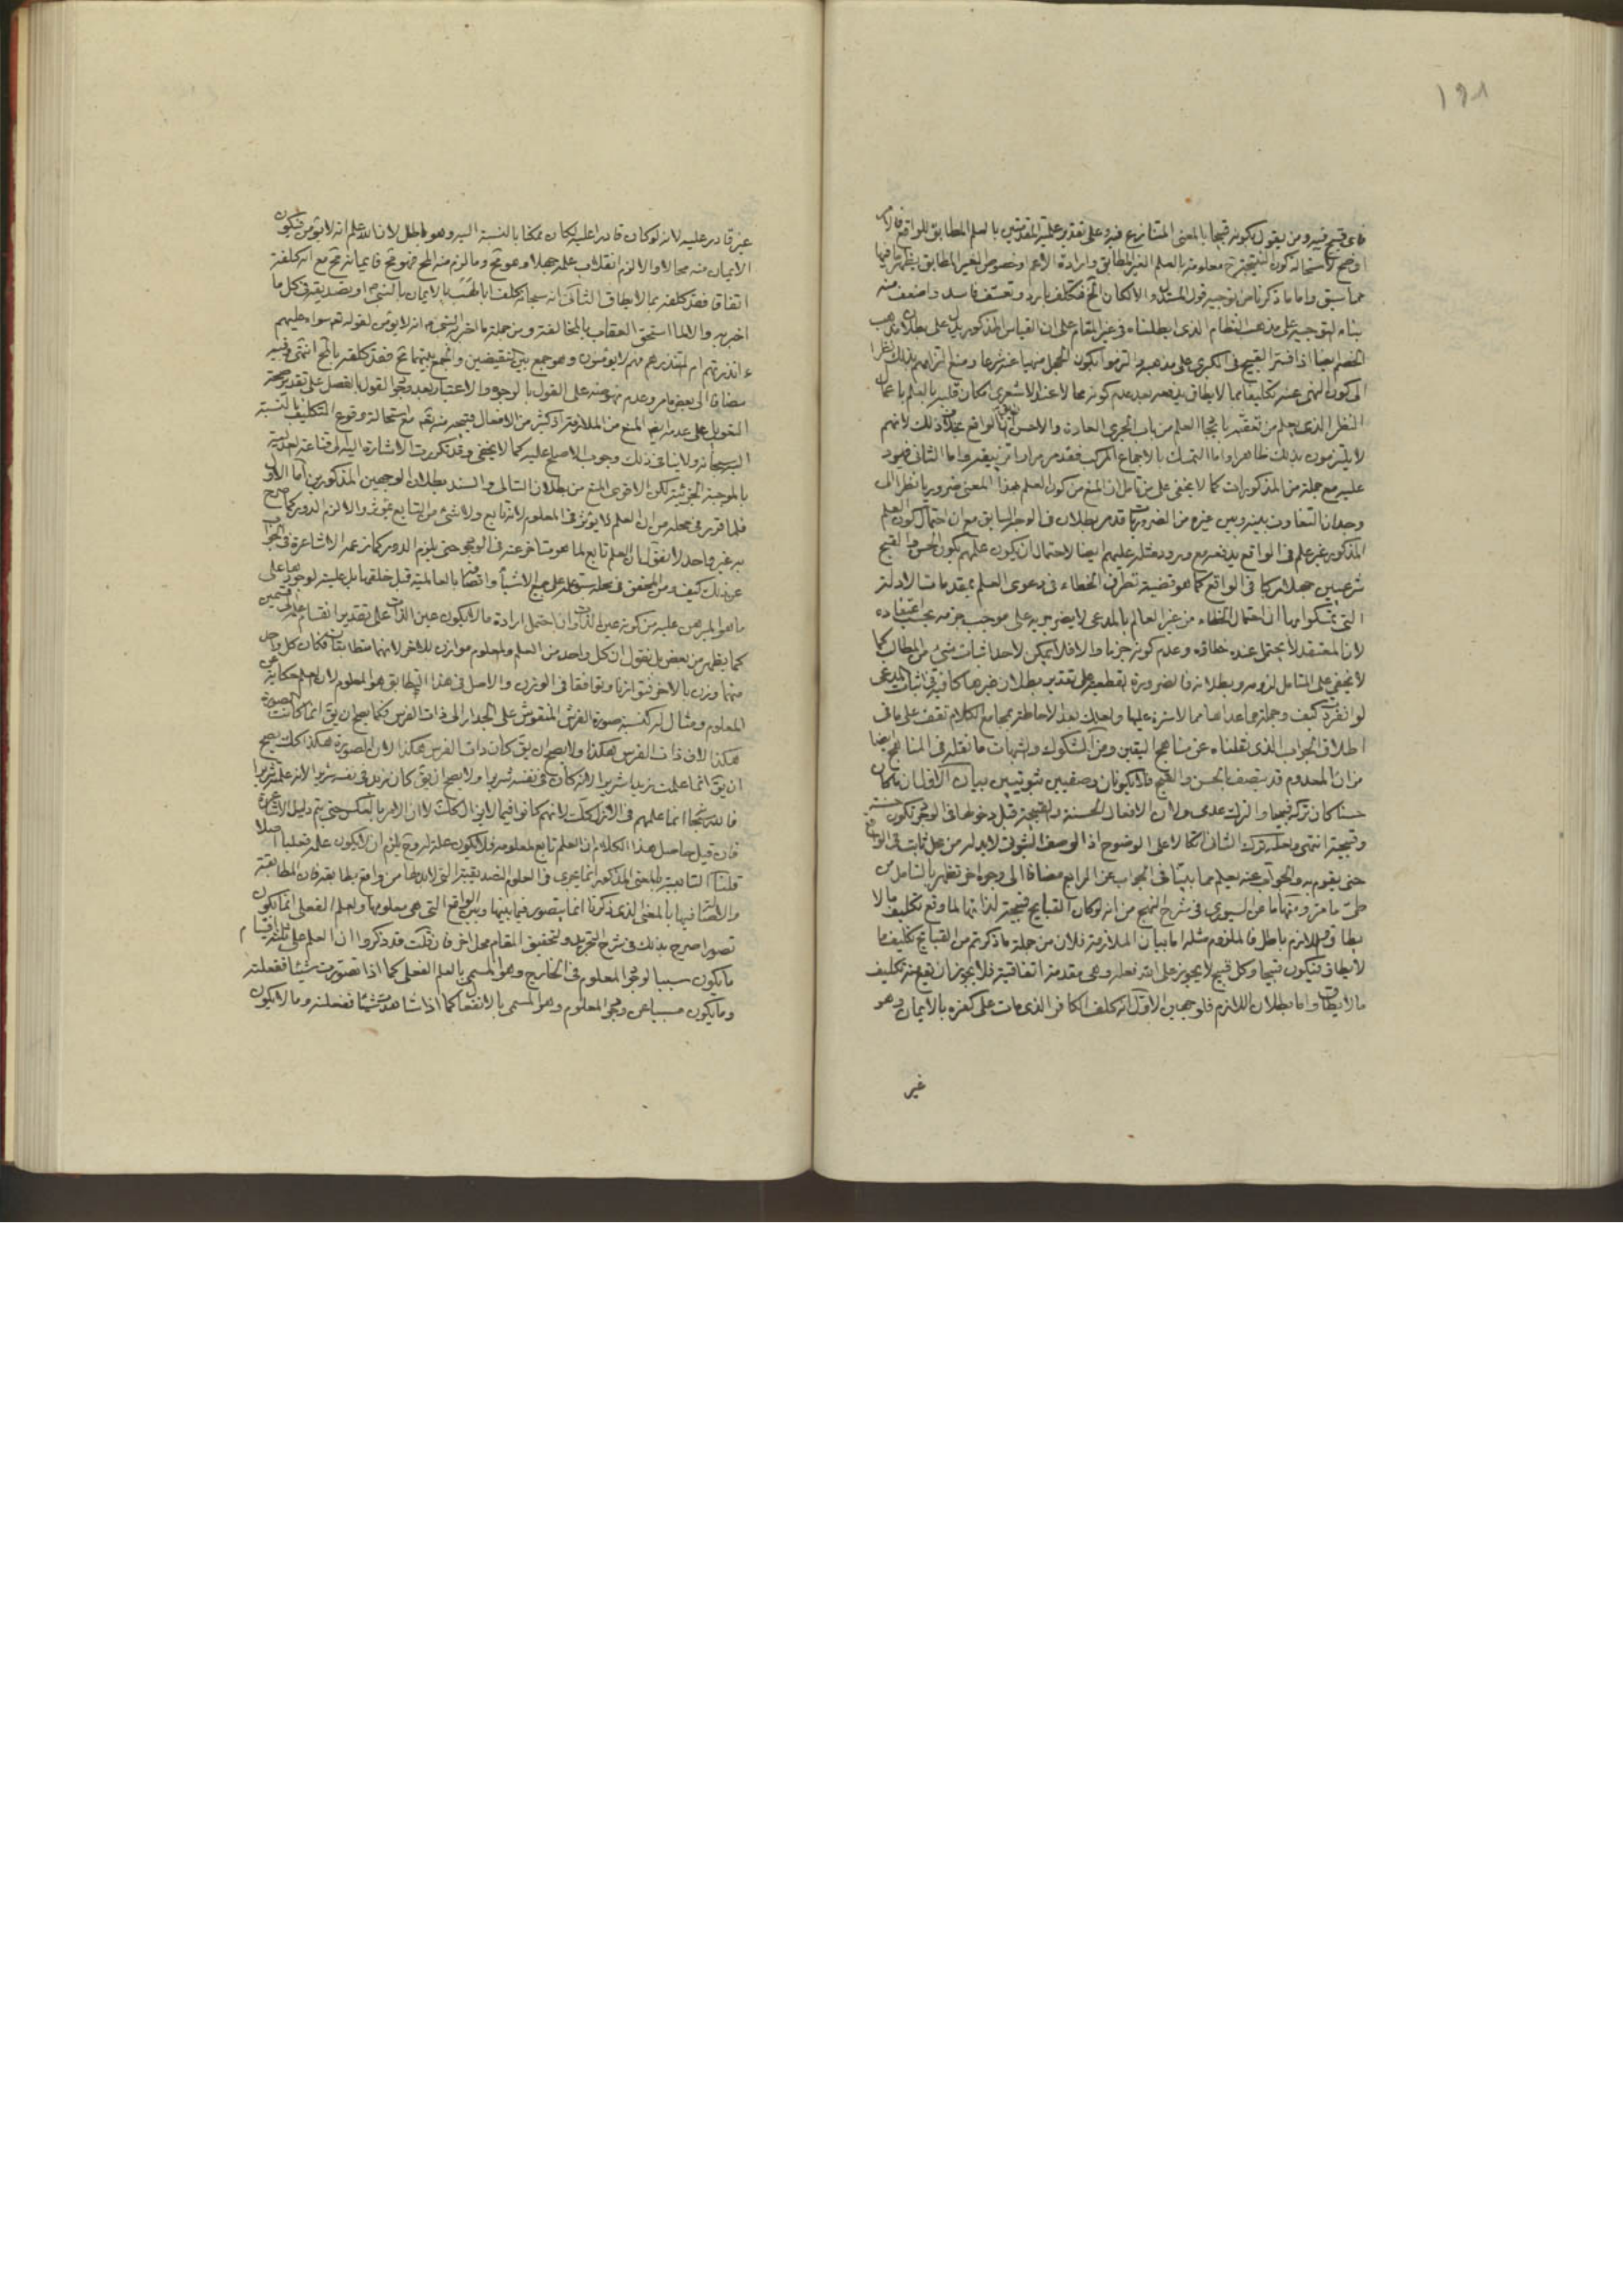 ١٩٨
فاى قبح فيه ومن يقول بكونه قبيحا بالمعنى المتنازع فيه وعلى تقدير علمية المقدمتين بالعلم المطابق للواقع فالامر
اوضح لاستحالة كون النتيجة ح معلومة بالعلم الغير المطابق وارادة الاعم او خصوص الغير المطابق يظهر ما فيها
مما سبق واما ما ذكرنا من توجيه قول المستدل والا لكان الخ فتكلف بارد وتعسف فاسد واضعف منه
بناء التوجيه على مذهب النظام الذى ابطلناه فى غير المقام على ان القياس المذكور يدل على بطلان مذهب
الخصم ايضا اذا فسر القبيح فى الكبرى على مذهبه والتزموا بكون الجهل منهيا عنه شرعا ومنع التزامهم بذلك نظرا
الى كون النهى عنه تكليفا بما لا يطاق يدفعه بعد عدم كونه محالا عند الاشعرى
النظر الذى يعلم من تعقبه العلم من باب الجرى العادى
لا يلتزمون بذلك ظاهرا واما التمسك بالاجماع المركب فقد مر مرارا تزييفه واما الثانى فيرد
عليه مع جملة من المذكورات كما لا يخفى على من تامل ان المنع من كون العلم بهذا المعنى ضروريا نظرا الى
وجدان التفاوت بينه وبين غيره من الضروريات قد مر بطلانه فى الوجه السابق مع ان احتمال كون العلم
المذكور غير علم فى الواقع يدفعه مع ورود مثله عليهم ايضا لاحتمال ان يكون علمهم بكون الحسن والقبح
شرعيين جهلا مركبا فى الواقع كما هو قضية تطرق الخطاء فى دعوى العلم بمقدمات الادلة
التى تمسكوا بها ان احتمال الخطاء من غير العالم بالمدعى لا يضر جريه على موجب جزمه بحسب اعتقاده
لان المعتقد لا يحتمل عنده خطاؤه وعدم كونه جزما والا فلا يمكن لاحد اثبات شىء من المطالب كما
لا يخفى على المتامل لزومه وبطلانه فالضرورة بقطعية على تقدير بطلان غيرها كافية فى اثبات المدعى
لو انفردت كيف وجملة ما عداها مما لا سترة عليها وعليك بعد الاحاطة بمجامع الكلام تقف على ما فى
اطلاق الجواب الذى نقلناه عن مناهج اليقين ومن الشكوك والشبهات ما نقله فى المناهج ايضا
من ان المعدوم قد يتصف بالحسن والقبح فلا يكونان وصفيين ثبوتيين بيان الاول ان ما كان
حسنا كان تركه قبيحا والترك عدمى ولان الافعال الحسنة والقبيحة قبل دخولها فى الوجود تكون حسنة
وقبيحة انتهى ولعله ترك الثانى اتكالا على الوضوح اذ الوصف الثبوتى لا بد له من محل ثابت فى الواقع
حتى يقوم به والجواب عنه يعلم مما بينا فى الجواب عن الرابع مضافا الى وجوه اخر تظهر بالتامل من
طى ما مر ومنها ما عن السيورى فى شرح النهج من انه لو كان القبايح قبيحة لذاتها لما وقع تكليف ما لا
يطاق واللازم باطل فالملزوم مثله اما بيان الملازمة فلان من جملة ما ذكرتم من القبايح تكليف ما
لا يطاق فيكون قبيحا وكل قبيح لا يجوز على الله فعله وهى مقدمة اتفاقية فلا يجوز ان يقع منه تكليف
ما لا يطاق واما بطلان اللازم فلوجهين الاول انه كلف الكافر الذى مات على كفره بالايمان وهو
غير
غير قادر عليه لانه لو كان قادرا عليه لكان ممكنا بالنسبة اليه وهو باطل لان الله علم انه لا يؤمن فيكون
الايمان منه محالا والا لزم انقلاب علمه جهلا وهو مح وما لزم منه المح فهو مح فايمانه مح مع انه كلفه
اتفاقا فقد كلفه بما لا يطاق الثانى انه سبحانه كلف ابا لهب بالايمان بالنبى ص او بتصديقه فى كل ما
اخبر به والا لما استحق العقاب بالمخالفة ومن جملة ما اخبر النبى ص انه لا يؤمن لقوله تع سواء عليهم
ءانذرتهم ام لم تنذرهم فهم لا يؤمنون وهو جمع بين النقيضين والجمع بينهما مح فقد كلفه بالمح انتهى وفيه
مضافا الى بعض ما مر وعدم نهوضه على القول بالوجوه والاعتبار بعد القول بالفصل على تقدير صحة
التعويل على عدمه المنع من الملازمة اذ كثير من الافعال قبيحة منه تع مع استحالة وقوع التكليف بالنسبة
اليه سبحانه ولا ينافى ذلك وجوب الاصلح عليه كما لا يخفى وقد تكررت الاشارة اليه
بالموجبة الجزئية لكن الاقوى المنع من بطلان التالى والسند بطلان الوجهين المذكورين اما الاول
فلما قرر فى محله من ان العلم لا يؤثر فى المعلوم لانه تابع ولا شىء من التابع بمؤثر والا لزم الدور كما صرح
به غير واحد لا نقول بان العلم تابع لما هو متاخر عنه فى الوجود حتى يلزم الدور كما زعمه الاشاعرة فى الجواب
عن ذلك كيف ومن المحقق فى محله سبق علمه على جميع الاشياء واتصافه بالعالمية قبل خلقها
ما هو المبرهن عليه من كونه عين الذات وان احتمل ارادة ما لا يكون عين الذات على تقدير انقسام علمه الى قسمين
كما يظهر من بعض بل نقول ان كل واحد من العلم والمعلوم موازن للاخر لانهما متطابقان فكان كل واحد
منهما وزن بالاخر فتوازنا وتوافقا فى الوزن والاصل فى هذا التطابق هو المعلوم لان العلم حكاية عن
المعلوم ومثال له كنسبة صورة الفرس المنقوش على الجدار الى ذات الفرس فكما يصح ان يق انما كانت الصورة
هكذا لان ذات الفرس هكذا ولا يصح ان يق كان ذات الفرس هكذا لان الصورة هكذا كك يصح
ان يق انما علمت زيدا شريرا لانه كان فى نفسه شريرا ولا يصح ان يق كان زيد فى نفسه شريرا لانى علمته شريرا
فالله سبحانه انما علمهم فى الازل كك لانهم كانوا فيما لا يزال كك لا ان الامر بالعكس حتى يتم دليل الاشاعرة
فان قيل حاصل هذا الكلام ان العلم تابع لمعلومه فلا يكون علة له وح يلزم ان لا يكون علمه فعليا اصلا
قلنا التابعية بالمعنى المذكور انما يجرى فى العلوم التصديقية التى لا بد لها من واقع يطابقه فان المطابقة
والاتصاف بها بالمعنى الذى ذكرنا انما يتصور فيما بينها وبين الواقع التى هى معلومها والعلم الفعلى انما يكون
تصورا صرح بذلك فى شرح التجريد ولتحقيق المقام محل اخر فان قلت قد ذكروا ان العلم على ثلثة اقسام
ما يكون سببا لوجود المعلوم فى الخارج وهو المسمى بالعلم الفعلى كما اذا تصورت شيئا ففعلته
وما يكون مسببا عن وجود المعلوم وهو المسمى بالانفعالى كما اذا شاهدت شيئا فتعقلته وما لا يكون